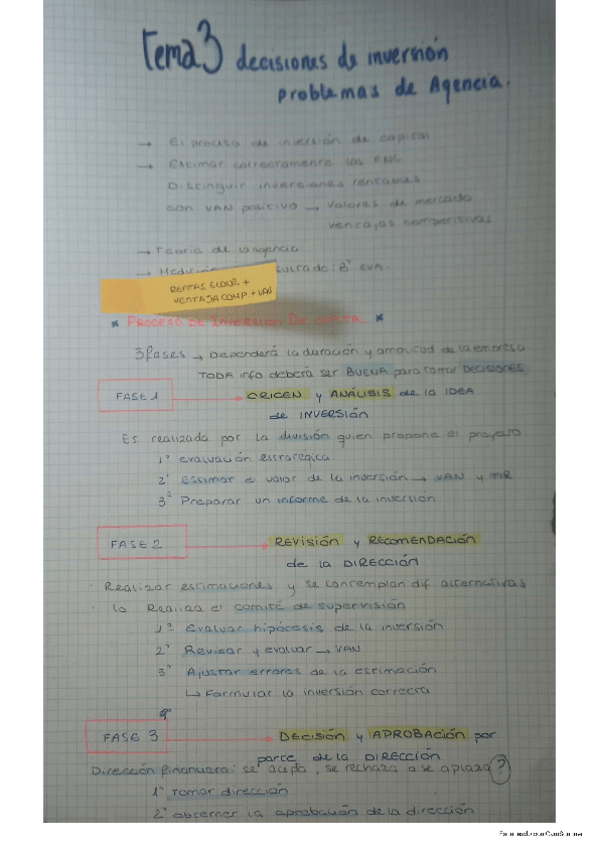 Tema 3 decisiones de inversión
problemas de Agencia.
→ El proceso de inversión de capital
→ Estimar correctamente los FNC
Distinguir inversiones rentables
con VAN positivo → Valores de mercado
ventajas competitivas
→ Teoria de la agencia
→ Medición resultado: Bº EVA.
RENTAS ECONÓ. +
VENTAJA COMP. + VAN
* PROCESO DE INVERSIÓN DE *
3 fases → Dependerá la duración y amplitud de la empresa
TODA info deberá ser BUENA para tomar DECISIONES
FASE 1 → ORIGEN y ANÁLISIS de la IDEA
de INVERSIÓN
Es realizada por la división quien propone el proyecto
1º evaluación estratégica
2º estimar el valor de la inversión → VAN y TIR
3º Preparar un informe de la inversión
FASE 2 → REVISIÓN y RECOMENDACIÓN
de la DIRECCIÓN
· Realizar estimaciones y se contemplan dif. alternativas
· lo Realiza el comité de supervisión
1º Evaluar hipótesis de la inversión
2º Revisar y evaluar → VAN
3º Ajustar errores de la estimación
↳ Formular la inversión correcta
FASE 3 → DECISIÓN y APROBACIÓN por
parte de la DIRECCIÓN
Dirección financiera: se acepta, se rechaza o se aplaza?
1º Tomar dirección
2º obtener la aprobación de la dirección
Escaneado con CamScanner